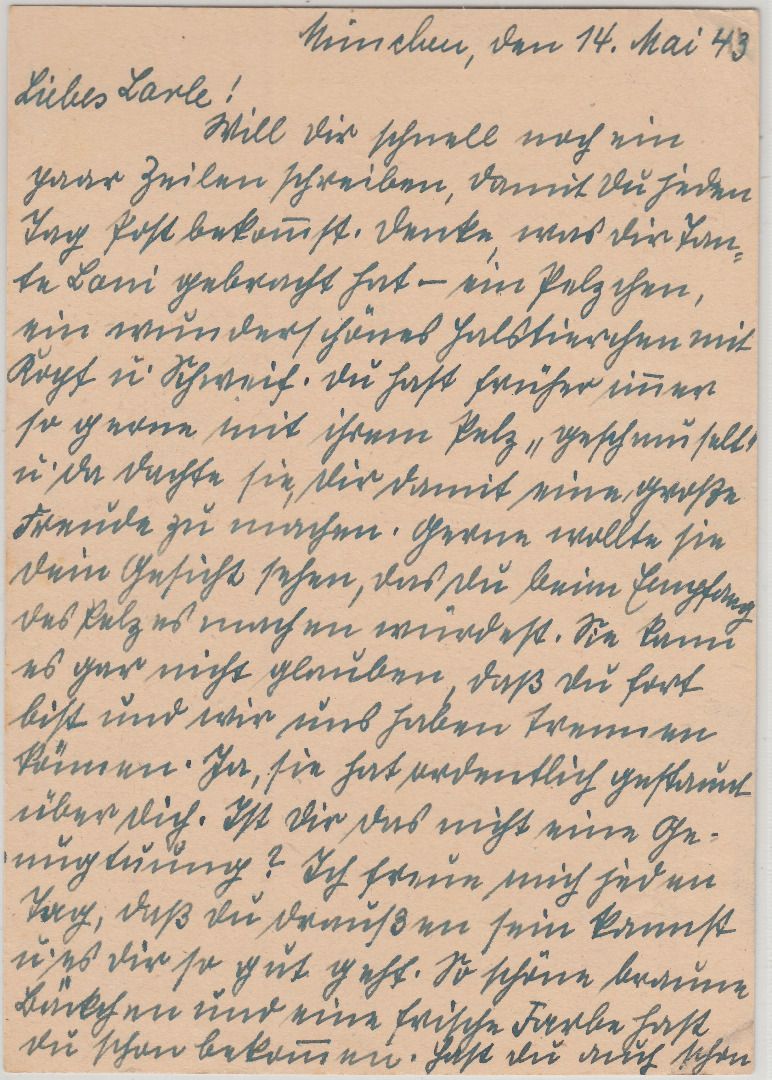 München, den 14. Mai 43
Liebes Larle!
Will dir schnell noch ein
paar Zeilen schreiben, damit du jeden
Tag Post bekom̅st. Denke, was dir Tan=
te Loni gebracht hat – ein Pelzchen,
ein wunderschönes Halstierchen mit
Kopf u. Schweif. Du hast früher im̅er
so gerne mit ihrem Pelz „geschmuselt"
u. da dachte sie, dir damit eine große
Freude zu machen. Gerne wollte sie
dein Gesicht sehen, das du beim Empfang
des Pelzes machen würdest. Sie kann
es gar nicht glauben, daß du fort
bist und wir uns haben trennen
können. Ja, sie hat ordentlich gestaunt
über dich. Ist dir das nicht eine Ge-
nugtuung? Ich freue mich jeden
Tag, daß du draußen sein kannst
u. es dir so gut geht. So schöne braune
Bäckchen und eine frische Farbe hast
du schon bekom̅en. Hast du auch schon